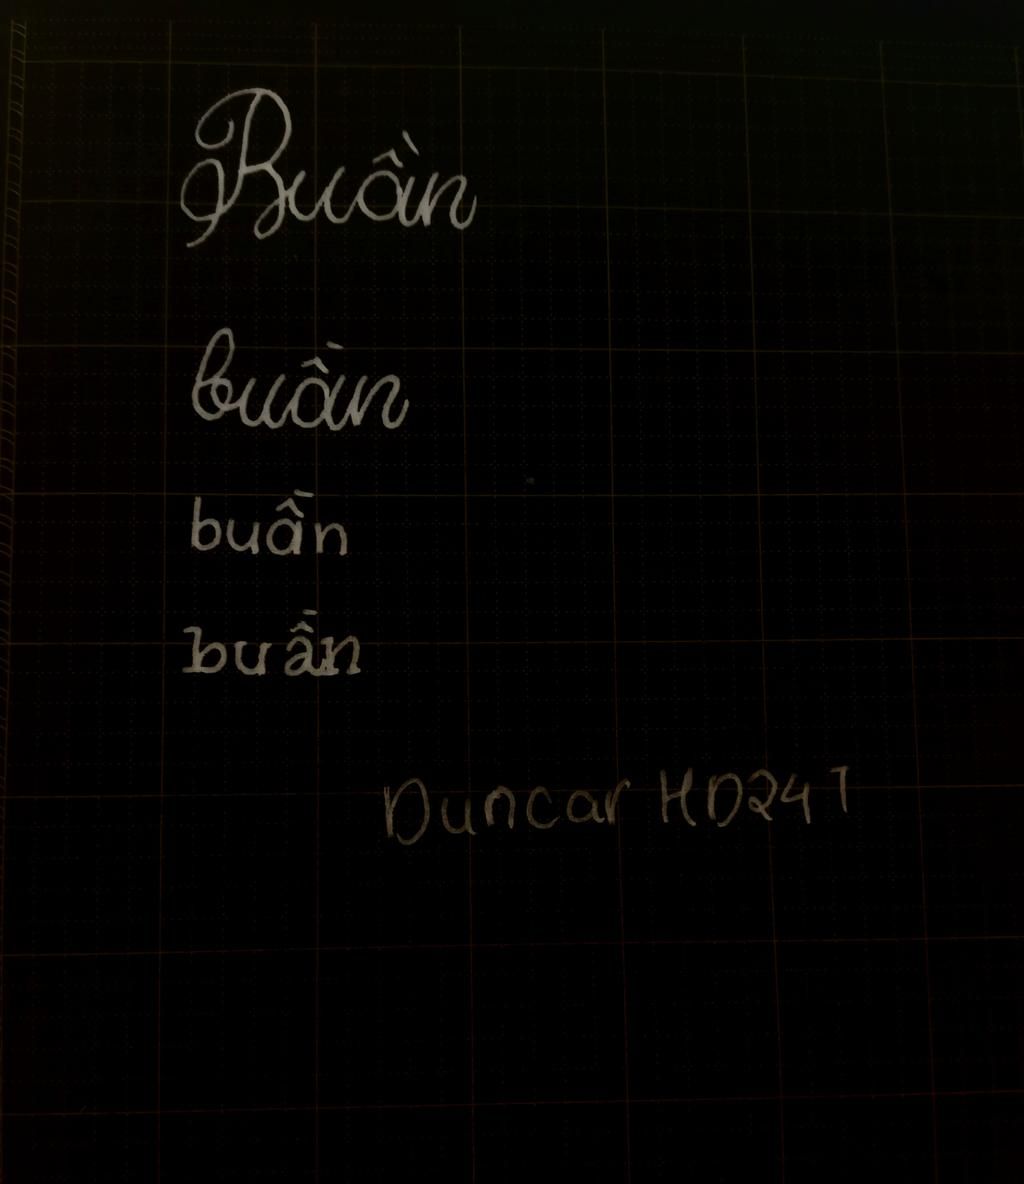 Buần
buần
buần
buần
Duncar HD247